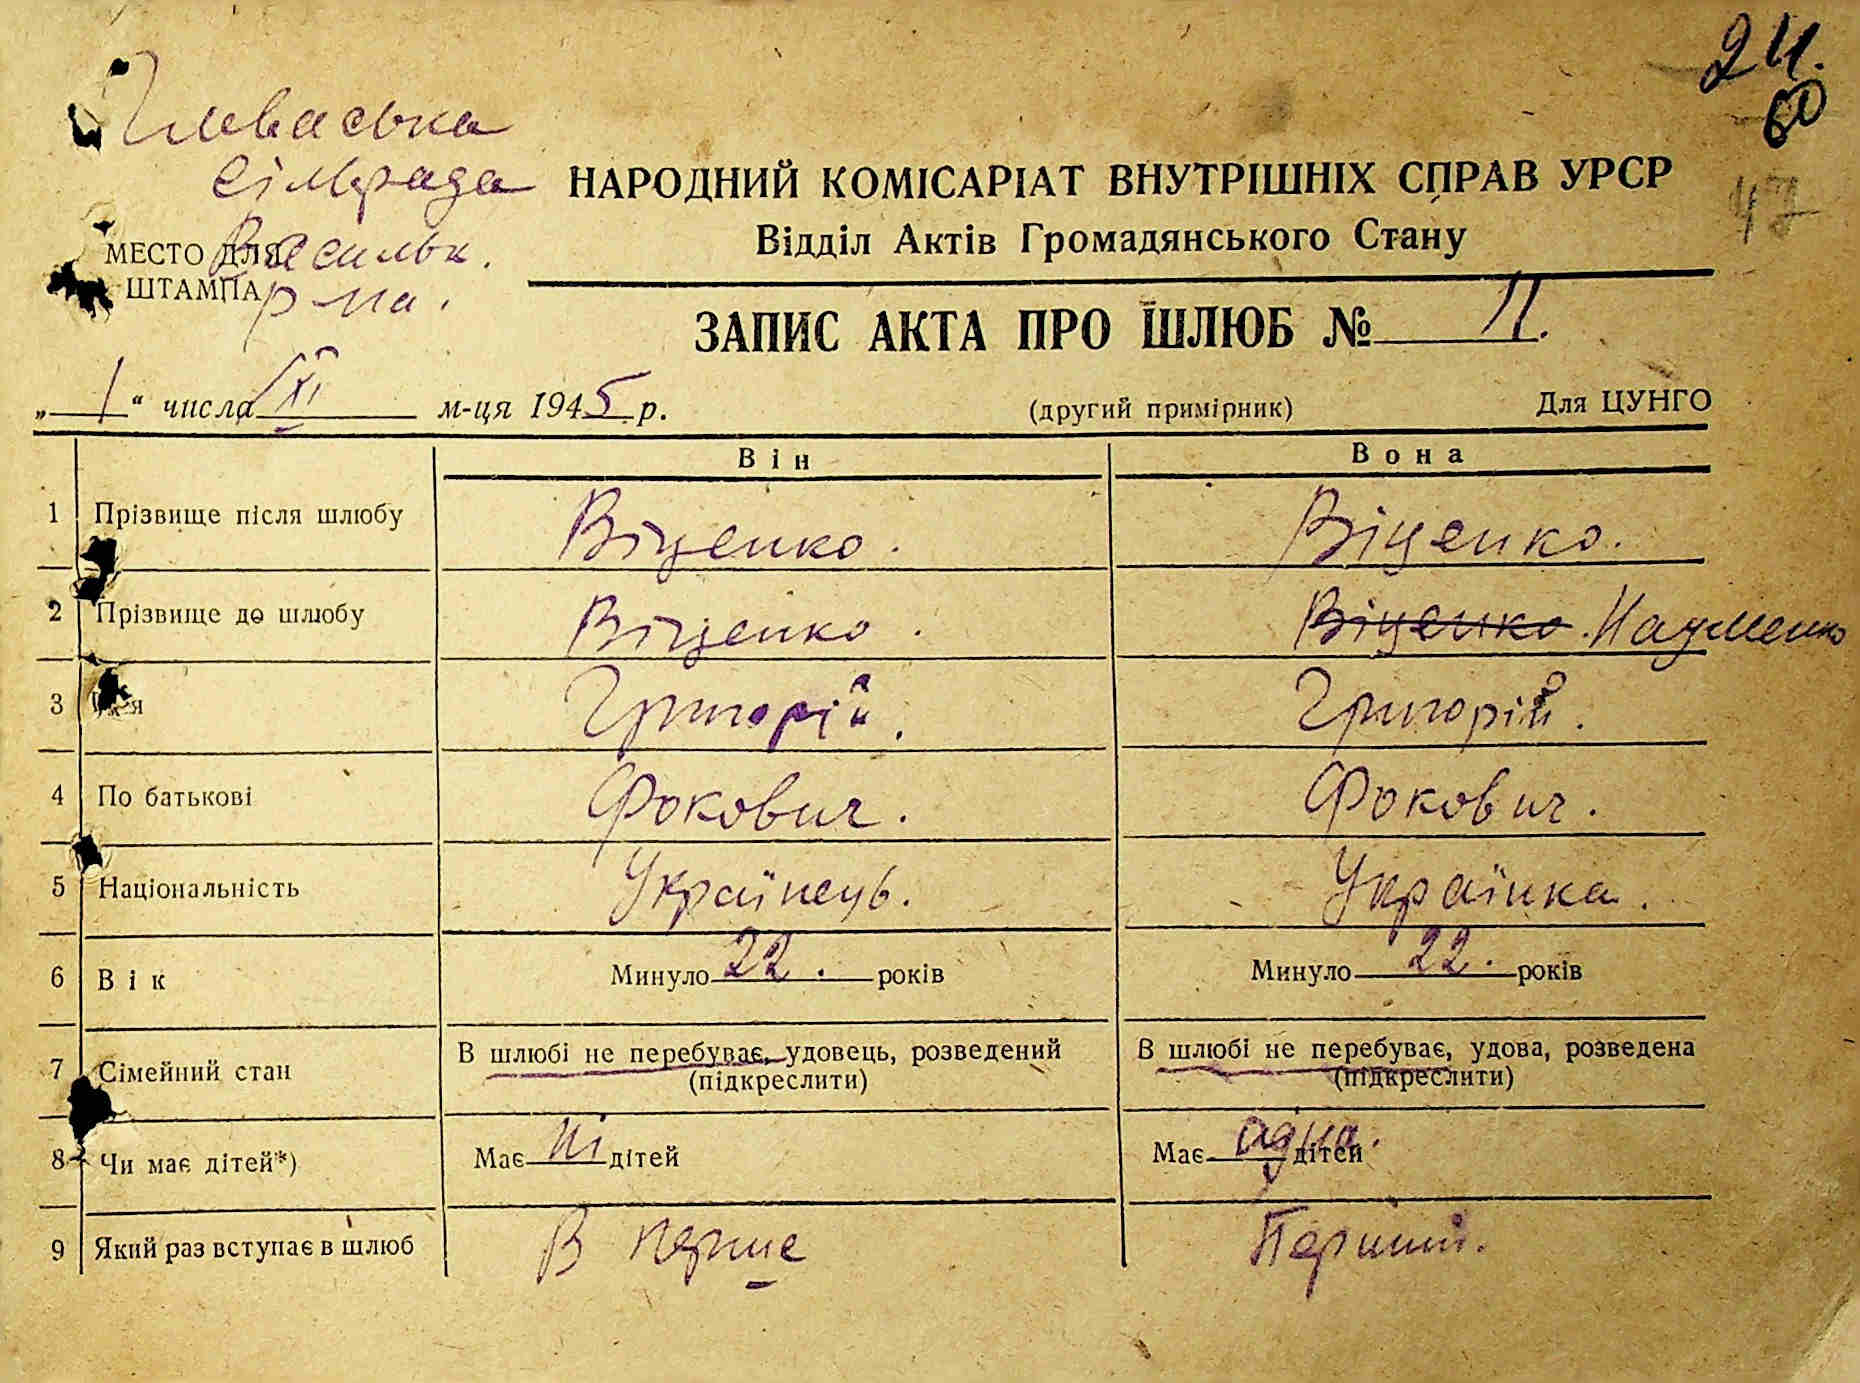 24.
60
47
Глеваська
сільрада
Васильк.
р-на.
МЕСТО ДЛЯ
ШТАМПА
НАРОДНИЙ КОМІСАРІАТ ВНУТРІШНІХ СПРАВ УРСР
Відділ Актів Громадянського Стану
ЗАПИС АКТА ПРО ШЛЮБ № 11.
„ 1 “ числа XI м-ця 1945 р. (другий примірник) Для ЦУНГО
Він Вона
1 Прізвище після шлюбу Віценко. Віценко.
2 Прізвище до шлюбу Віценко. Віценко. Науменко
3 Ім'я Григорій. Григорій.
4 По батькові Фокович. Фокович.
5 Національність Українець. Українка.
6 Вік Минуло 22. років Минуло 22. років
7 Сімейний стан В шлюбі не перебуває, удовець, розведений В шлюбі не перебуває, удова, розведена
(підкреслити) (підкреслити)
8 Чи має дітей*) Має ні дітей Має одна. дітей
9 Який раз вступає в шлюб В перше Перший.